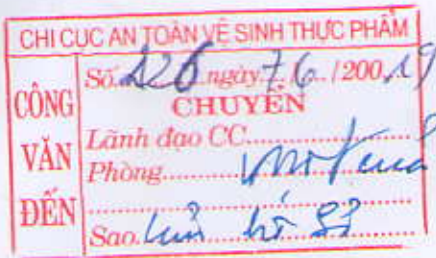 CHI CỤC AN TOÀN VỆ SINH THỰC PHẨM
CÔNG VĂN ĐẾN
Số. 426 ngày. 7/6. /200.19
CHUYỂN
Lãnh đạo CC
Phòng
Sao. Lưu hồ sơ